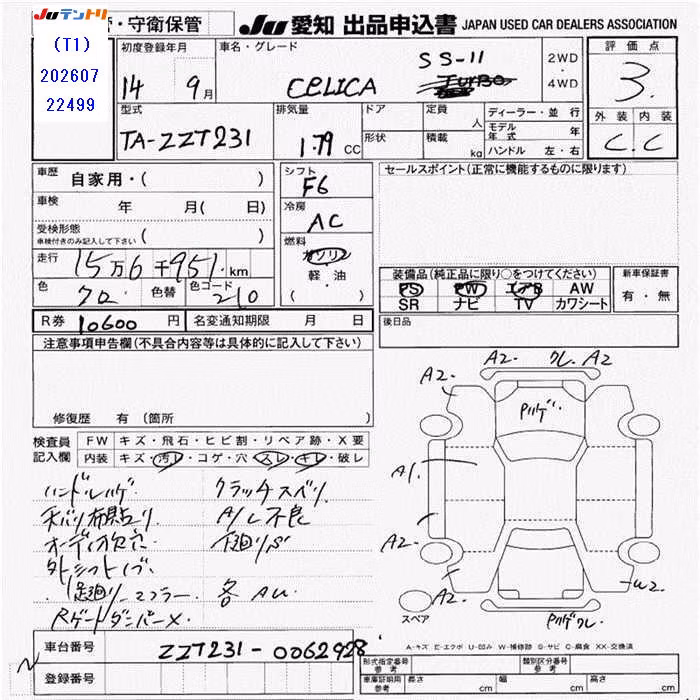 JUテントリ
(T1)
202607
22499
・守衛保管
JU 愛知 出品申込書 JAPAN USED CAR DEALERS ASSOCIATION
初度登録年月
14 年 9月
車名・グレード
CELICA
SS-II
TURBO
2WD
・
4WD
評価点
3.
外装 内装
C. C
型式
TA-ZZT231
排気量
1.79 CC
ドア
形状
定員 人
積載 kg
ディーラー・並行
モデル年式 年
ハンドル 左・右
車歴 自家用・( )
車検 年 月( 日)
受検形態
車検付きのみ記入して下さい ( )
走行 15万6千951 km
色 クロ 色替 色コード 210
シフト
F6
冷房
AC
燃料
ガソリン
軽・油
( ・ )
セールスポイント(正常に機能するものに限ります)
装備品(純正品に限り○をつけてください)
PS PW エアB AW
SR ナビ TV カワシート
新車保証書
有・無
R券 10600 円 名変通知期限 月 日
後日品
注意事項申告欄(不具合内容等は具体的に記入して下さい)
修復歴 有 (箇所 )
検査員
記入欄
FW キズ・飛石・ヒビ割・リペア跡・X要
内装 キズ・汚レ・コゲ・穴・スレ・キレ・破レ
ハンドルハゲ クラッチスベリ
天バリ布貼り A/C不良
オーディオ欠穴 下廻りS
外シフトノブ
足廻り−マフラー 各AU
RゲートダンパーX
A2. クレ A2
A2.
Pハゲ
A1.
A2.
A2
W2
Pハゲクレ
スペア
A-キズ E-エクボ U-凹み W-補修跡 S-サビ C-腐食 XX-交換済
車台番号 ZZT231-0062928
登録番号
形式指定番号
参考
類別区分番号
参考
車庫証明用
参考
長さ cm 幅 cm 高さ cm